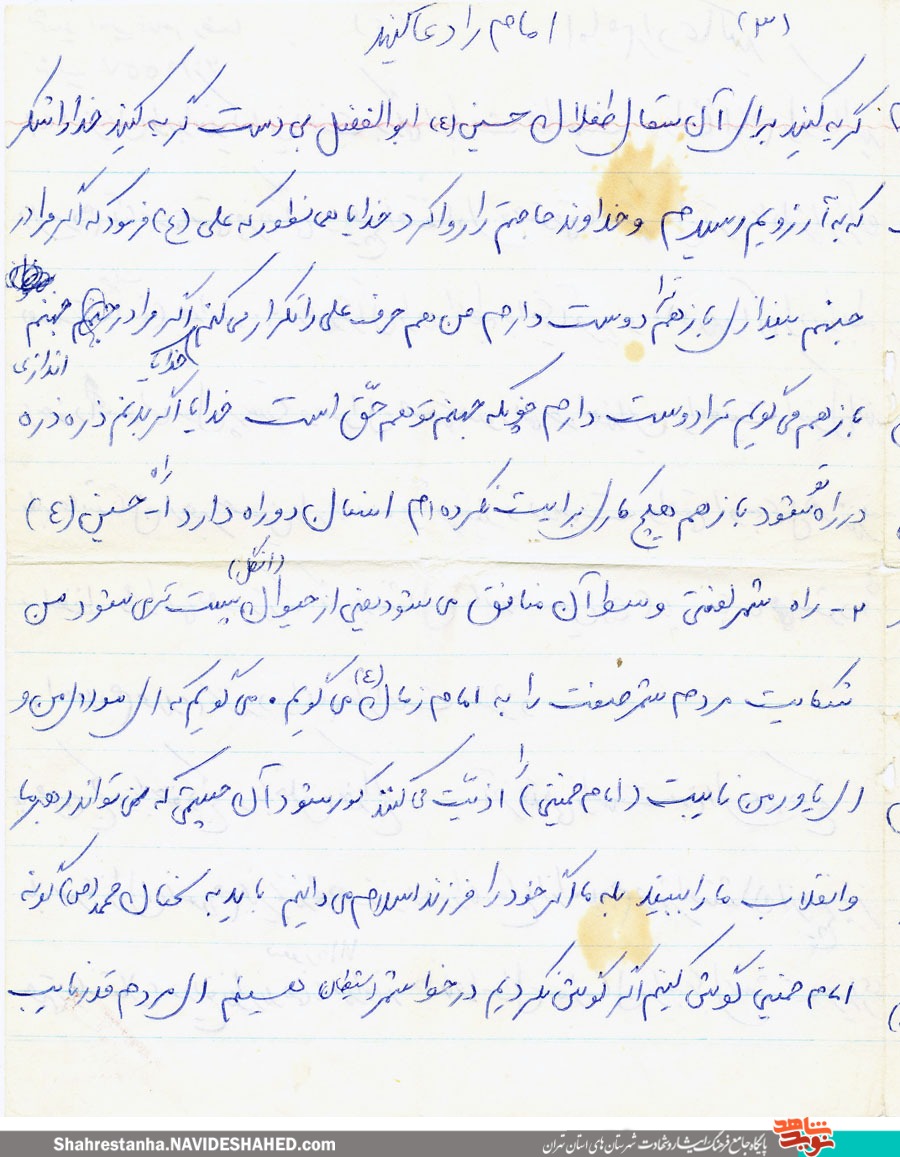 (۳) امام را دعا کنید
گریه کنید برای آن طفلان حسین (ع) ابوالفضل بی دست گریه کنید خدا را شکر
که به آرزویم رسیدم و خداوند حاجتم را روا کرد خدایا همانطور که علی (ع) فرمود که اگر مرا در
جهنم بیندازی باز هم ترا دوست دارم من هم حرف علی را تکرار می کنم خدایا اگر مرا در جهنم اندازی
باز هم می گویم ترا دوست دارم چونکه جهنم تو هم حقّ است خدایا اگر بدنم ذره ذره
در راه تو شود باز هم هیچ کاری برایت نکرده ام انسان دو راه دارد ۱- راه حسین (ع)
۲- راه شمر لعنتی وسط آن منافق می شود یعنی از حیوان (انگل) پست تر می شود من
شکایت مردم شمر صفت را به امام زمان (ع) می گویم . می گویم که ای مولای من و
ای یاور من نایبت (امام خمینی) را اذیّت می کنند کور شود آن چشمی که نمی تواند رهبر ما
و انقلاب ما را ببیند بله ما اگر خود را فرزند اسلام می دانیم باید به سخنان محمد (ص) گونه
امام خمینی گوش کنیم اگر گوش نکردیم در خواب شیطان هستیم ای مردم قدر نایب
Shahrestanha.NAVIDESHAHED.com
پایگاه جامع فرهنگ ایثار و شهادت شهرستان های استان تهران
نوید شاهد